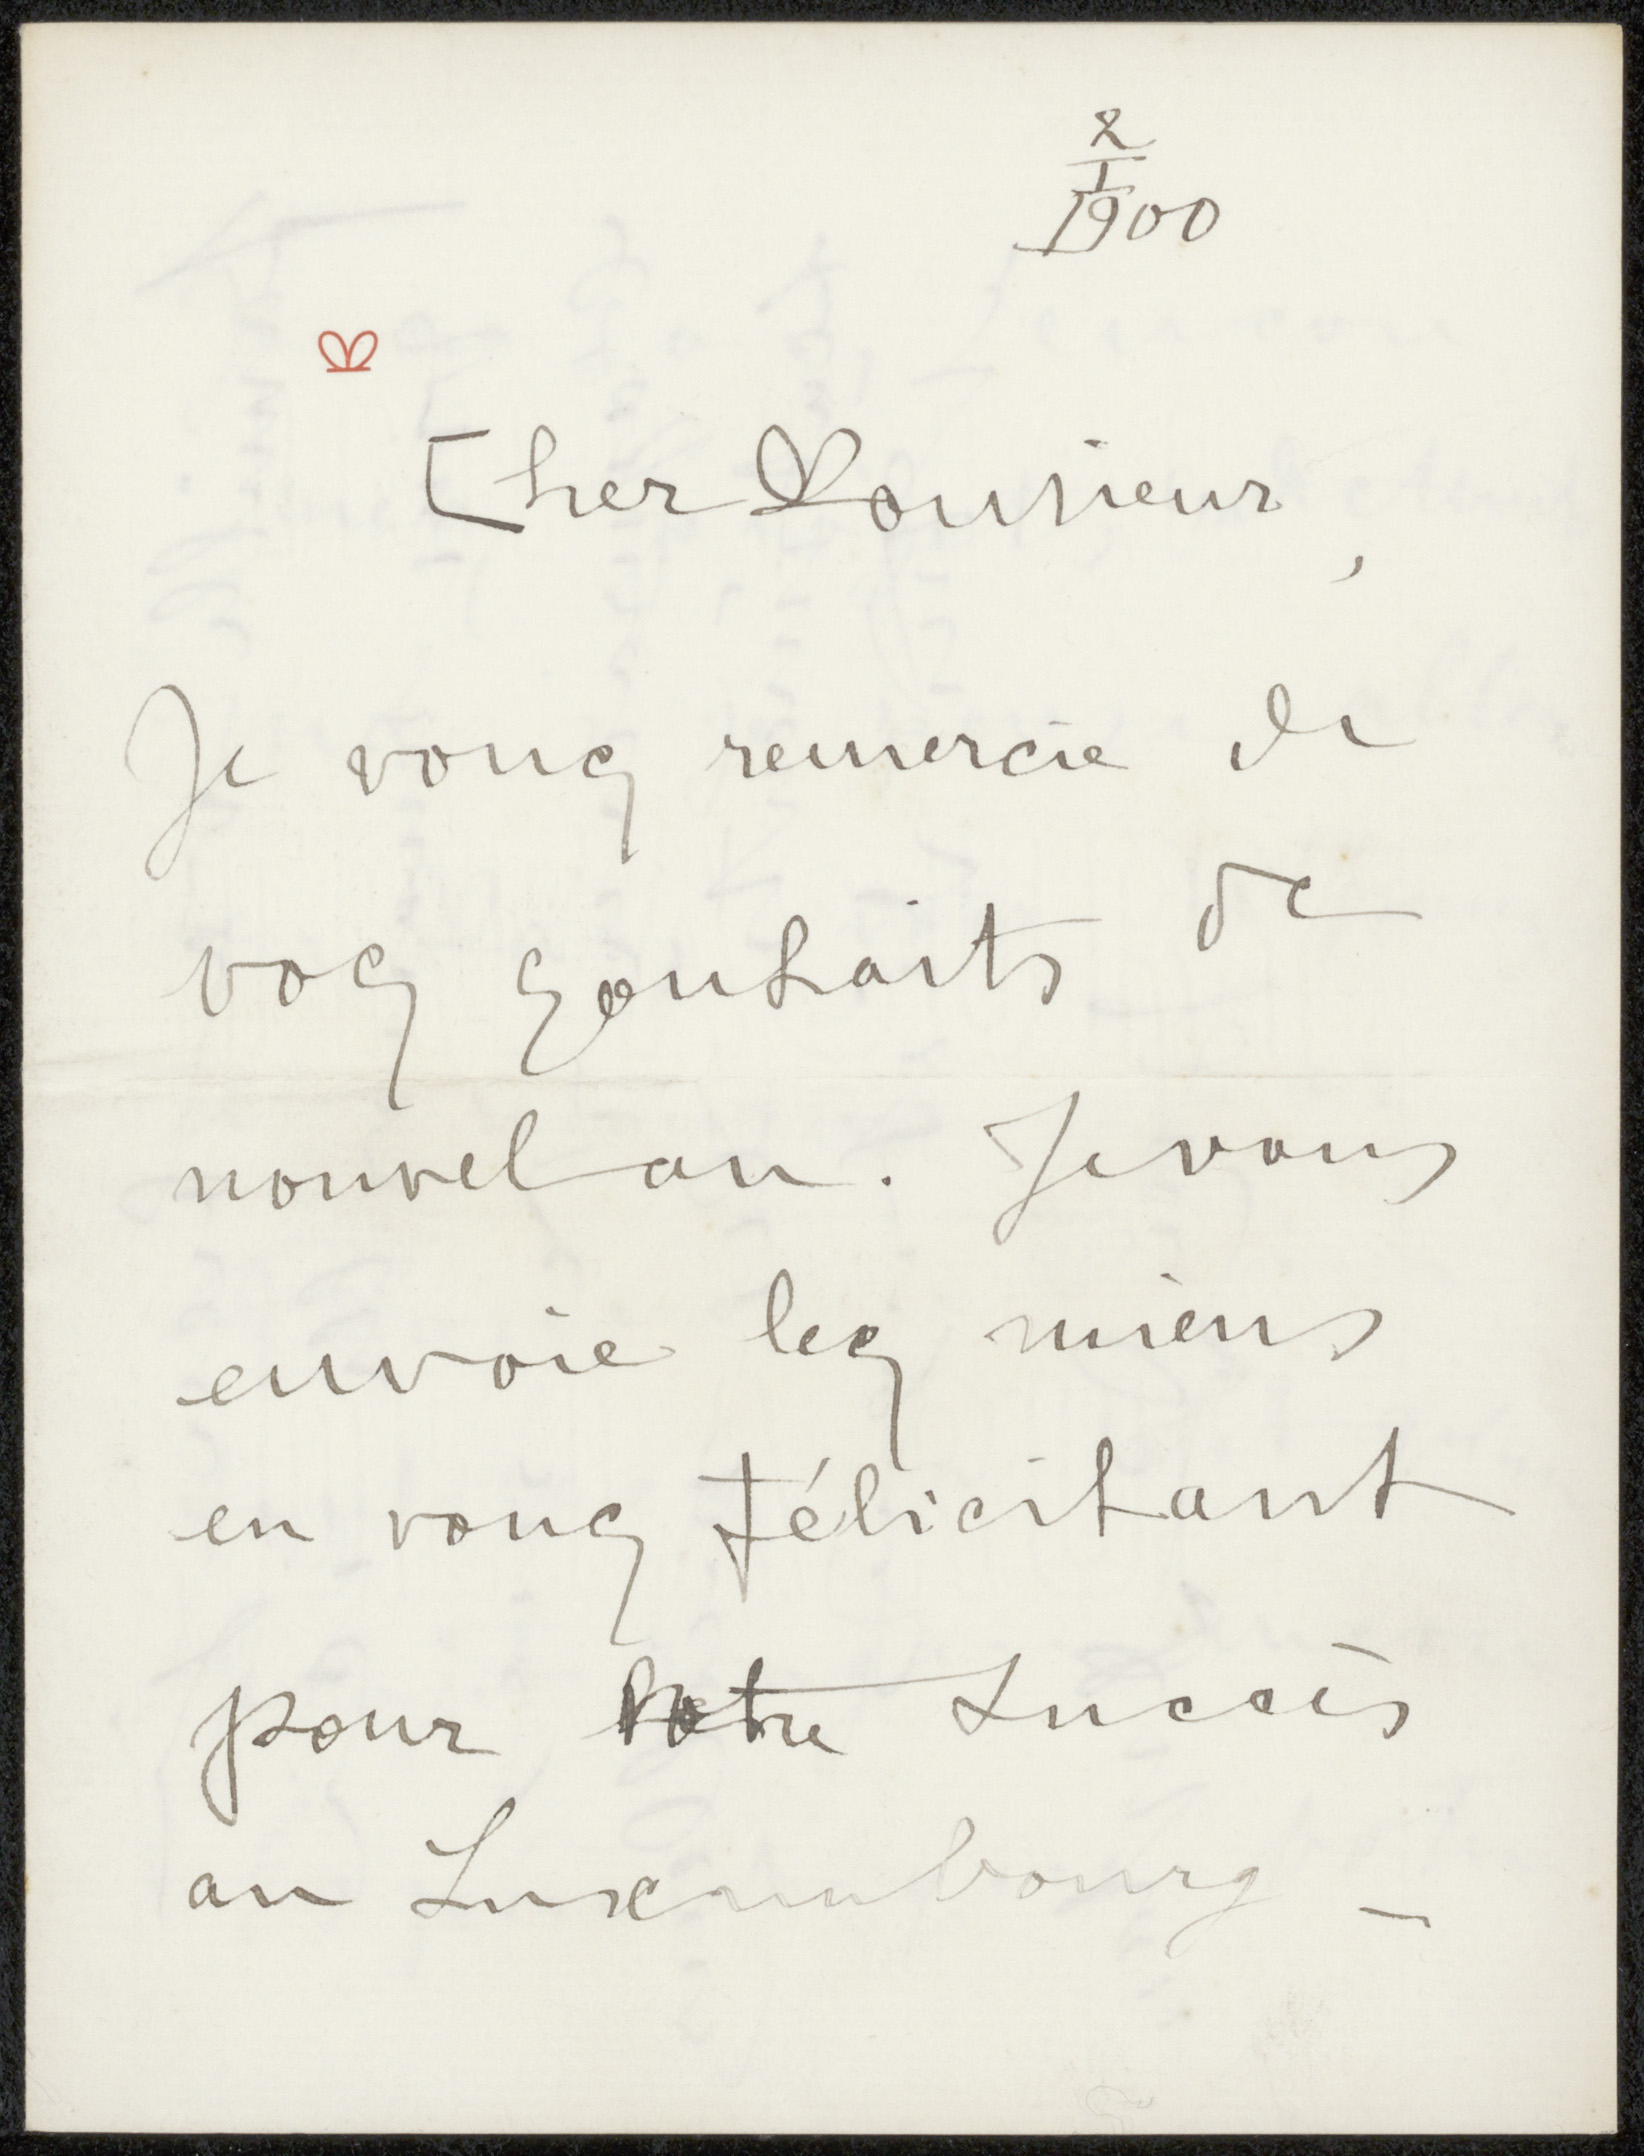 2
1
1900
Cher Monsieur,
Je vous remercie de
vos souhaits de
nouvel an. Je vous
envoie les miens
en vous félicitant
pour votre succès
au Luxembourg _